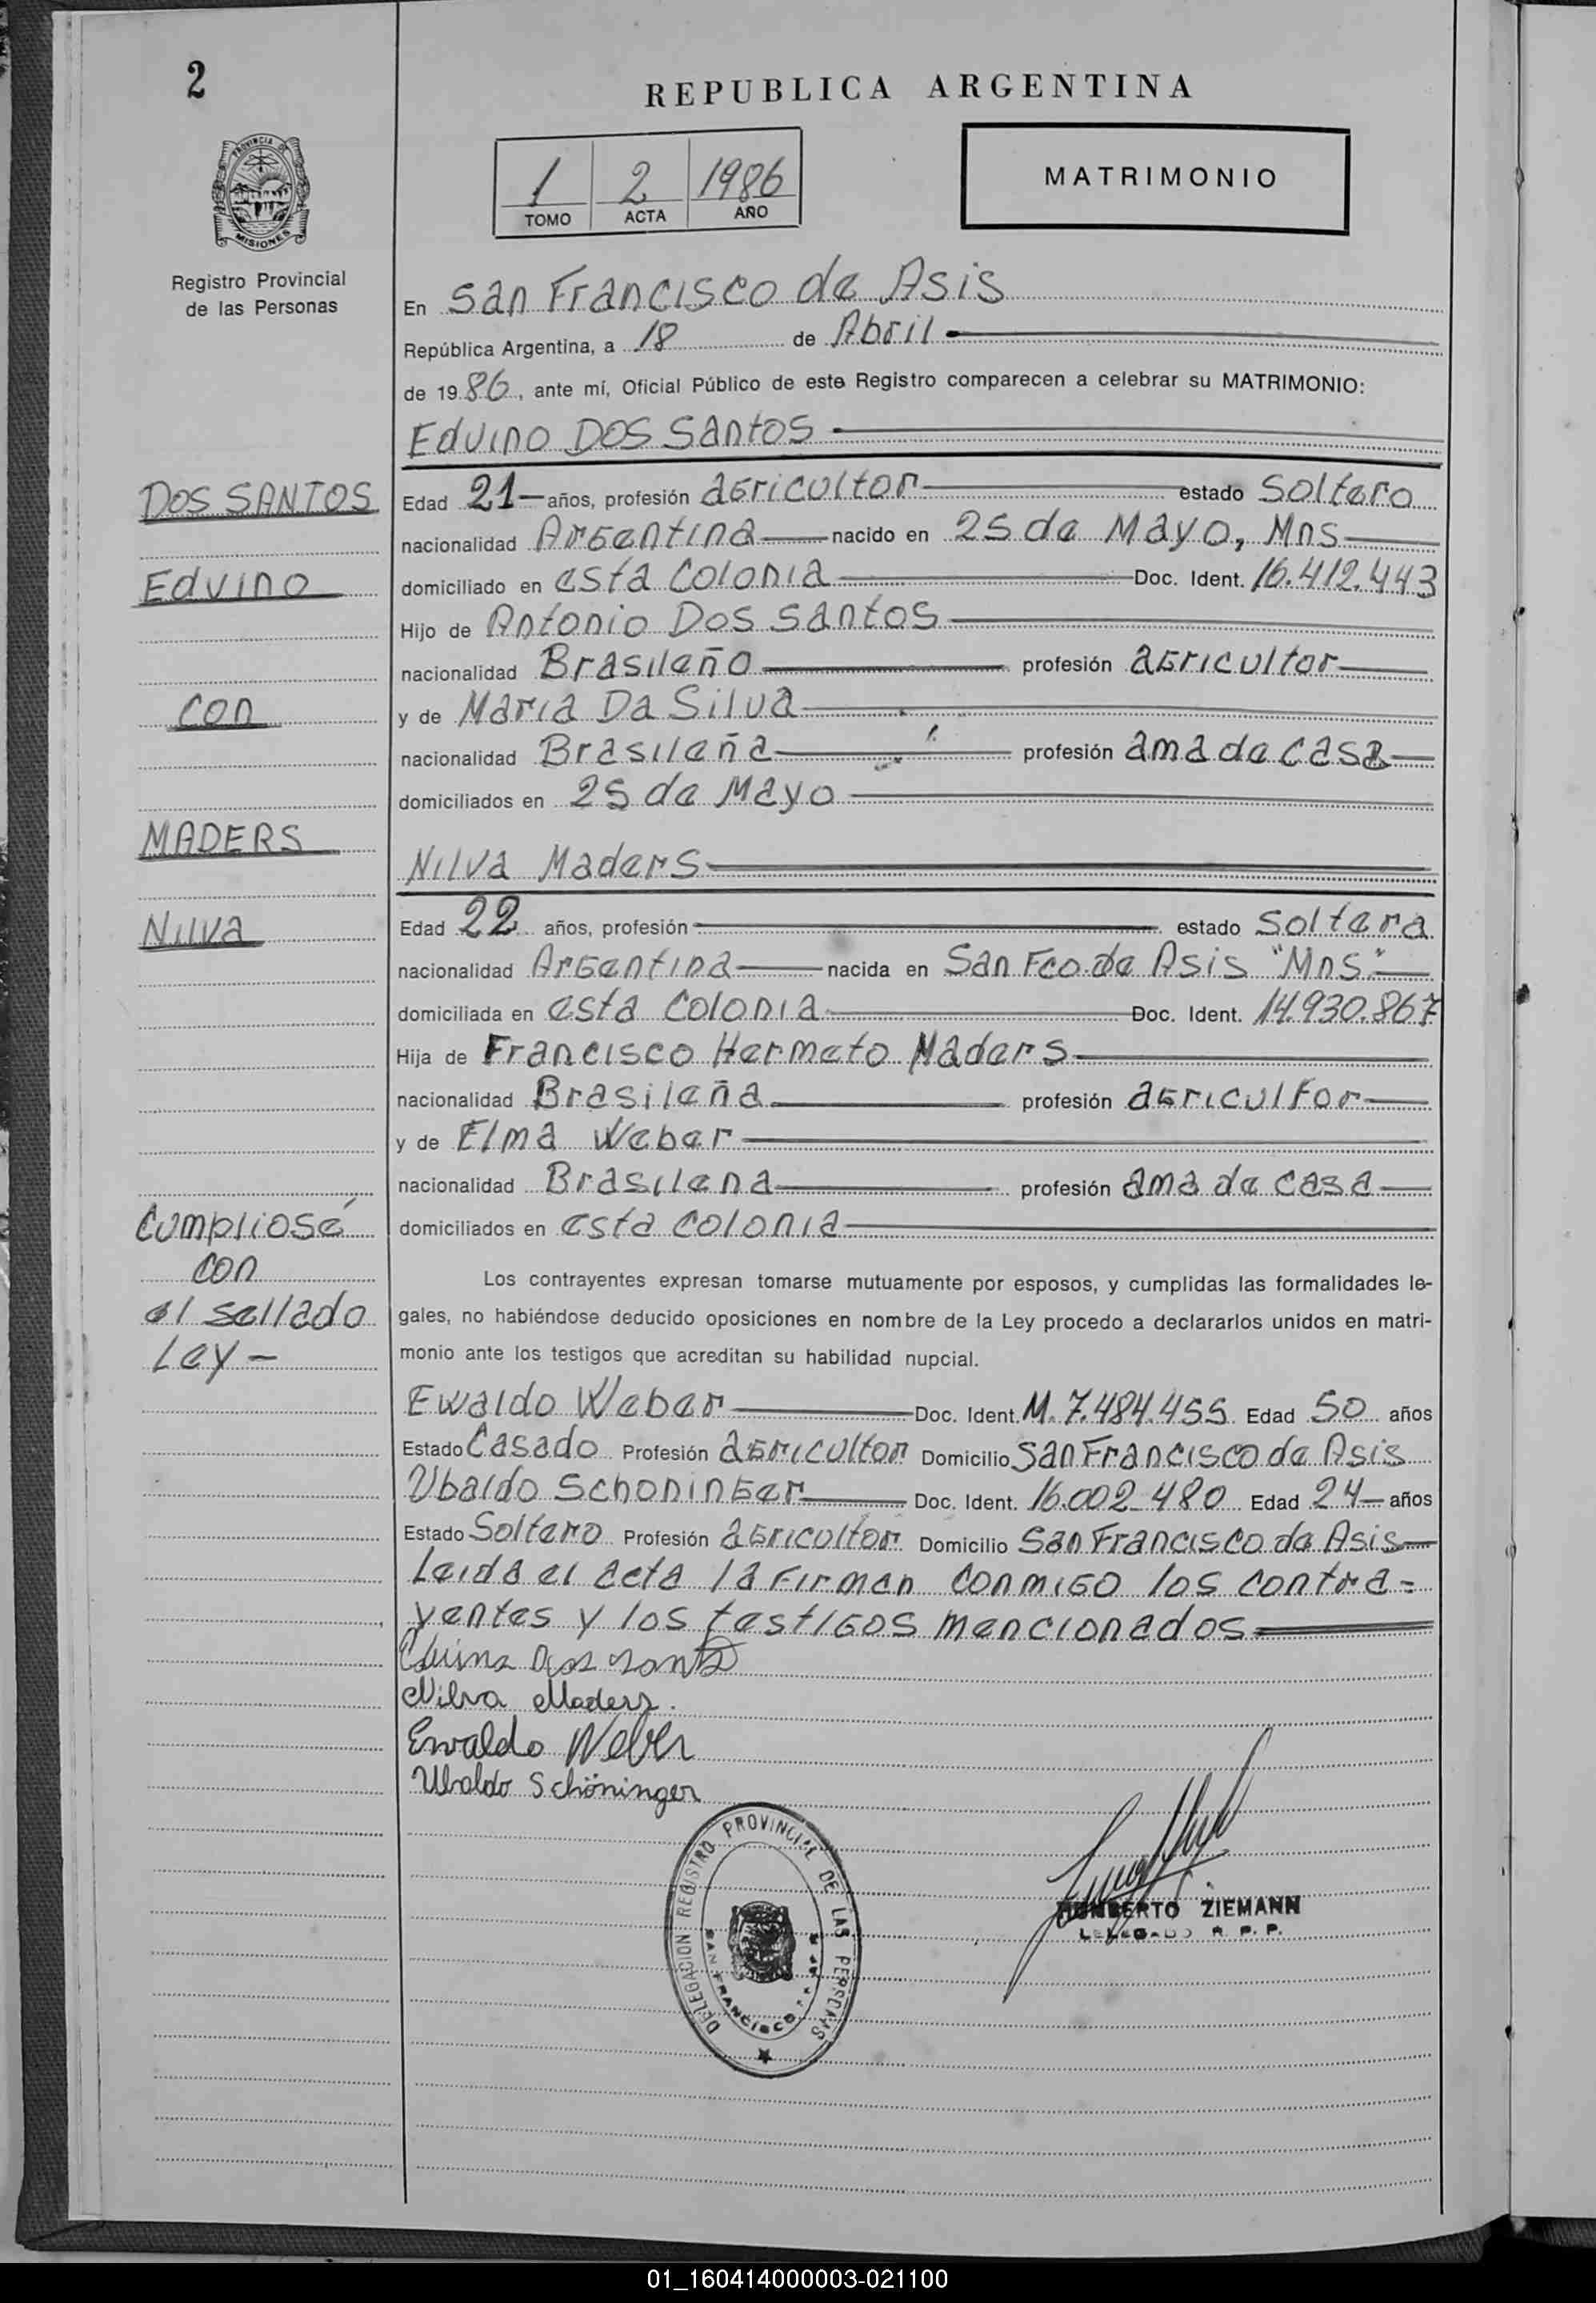 2
REPUBLICA ARGENTINA
1 2 1986
TOMO ACTA AÑO
MATRIMONIO
PROVINCIA DE
MISIONES
Registro Provincial
de las Personas
En San Francisco de Asis
República Argentina, a 18 de Abril
de 1986, ante mí, Oficial Público de este Registro comparecen a celebrar su MATRIMONIO:
Edvino Dos Santos
DOS SANTOS
Edvino
con
MADERS
Nilva
Cumpliosé
con
el sellado
Ley -
Edad 21 años, profesión agricultor estado Soltero
nacionalidad Argentina nacido en 25 de Mayo, Mns
domiciliado en esta Colonia Doc. Ident. 16.412.443
Hijo de Antonio Dos Santos
nacionalidad Brasileño profesión agricultor
y de Maria Da Silva
nacionalidad Brasileña profesión ama de casa
domiciliados en 25 de Mayo
Nilva Maders
Edad 22 años, profesión estado Soltera
nacionalidad Argentina nacida en San Fco. de Asis "Mns"
domiciliada en esta Colonia Doc. Ident. 14.930.867
Hija de Francisco Hermeto Maders
nacionalidad Brasileña profesión agricultor
y de Elma Weber
nacionalidad Brasilena profesión ama de casa
domiciliados en esta colonia
Los contrayentes expresan tomarse mutuamente por esposos, y cumplidas las formalidades le-
gales, no habiéndose deducido oposiciones en nombre de la Ley procedo a declararlos unidos en matri-
monio ante los testigos que acreditan su habilidad nupcial.
Ewaldo Weber Doc. Ident. M. 7.484.455 Edad 50 años
Estado Casado Profesión agricultor Domicilio San Francisco de Asis
Ubaldo Schoninger Doc. Ident. 16.002.480 Edad 24 años
Estado Soltero Profesión agricultor Domicilio San Francisco de Asis
Leida el acta la firman conmigo los contra=
yentes y los testigos mencionados
Nilva Maders.
Ewaldo Weber
Ubaldo Schöninger
DELEGACION REGISTRO PROVINCIAL DE LAS PERSONAS
SAN FRANCISCO
HUMBERTO ZIEMANN
R. P. P.
01_160414000003-021100